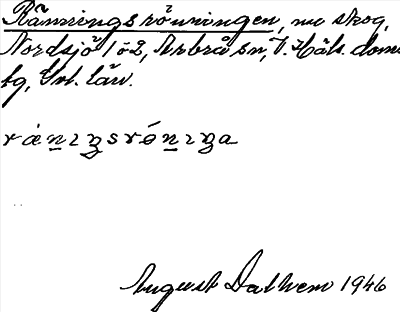 Ränningsrönningen, nu skog,
Nordsjö 1o2, Arbrå sn, V. Häls. doms
bg, Gvl. län.
rànɩŋsrónɩŋa
August Dalhem 1946